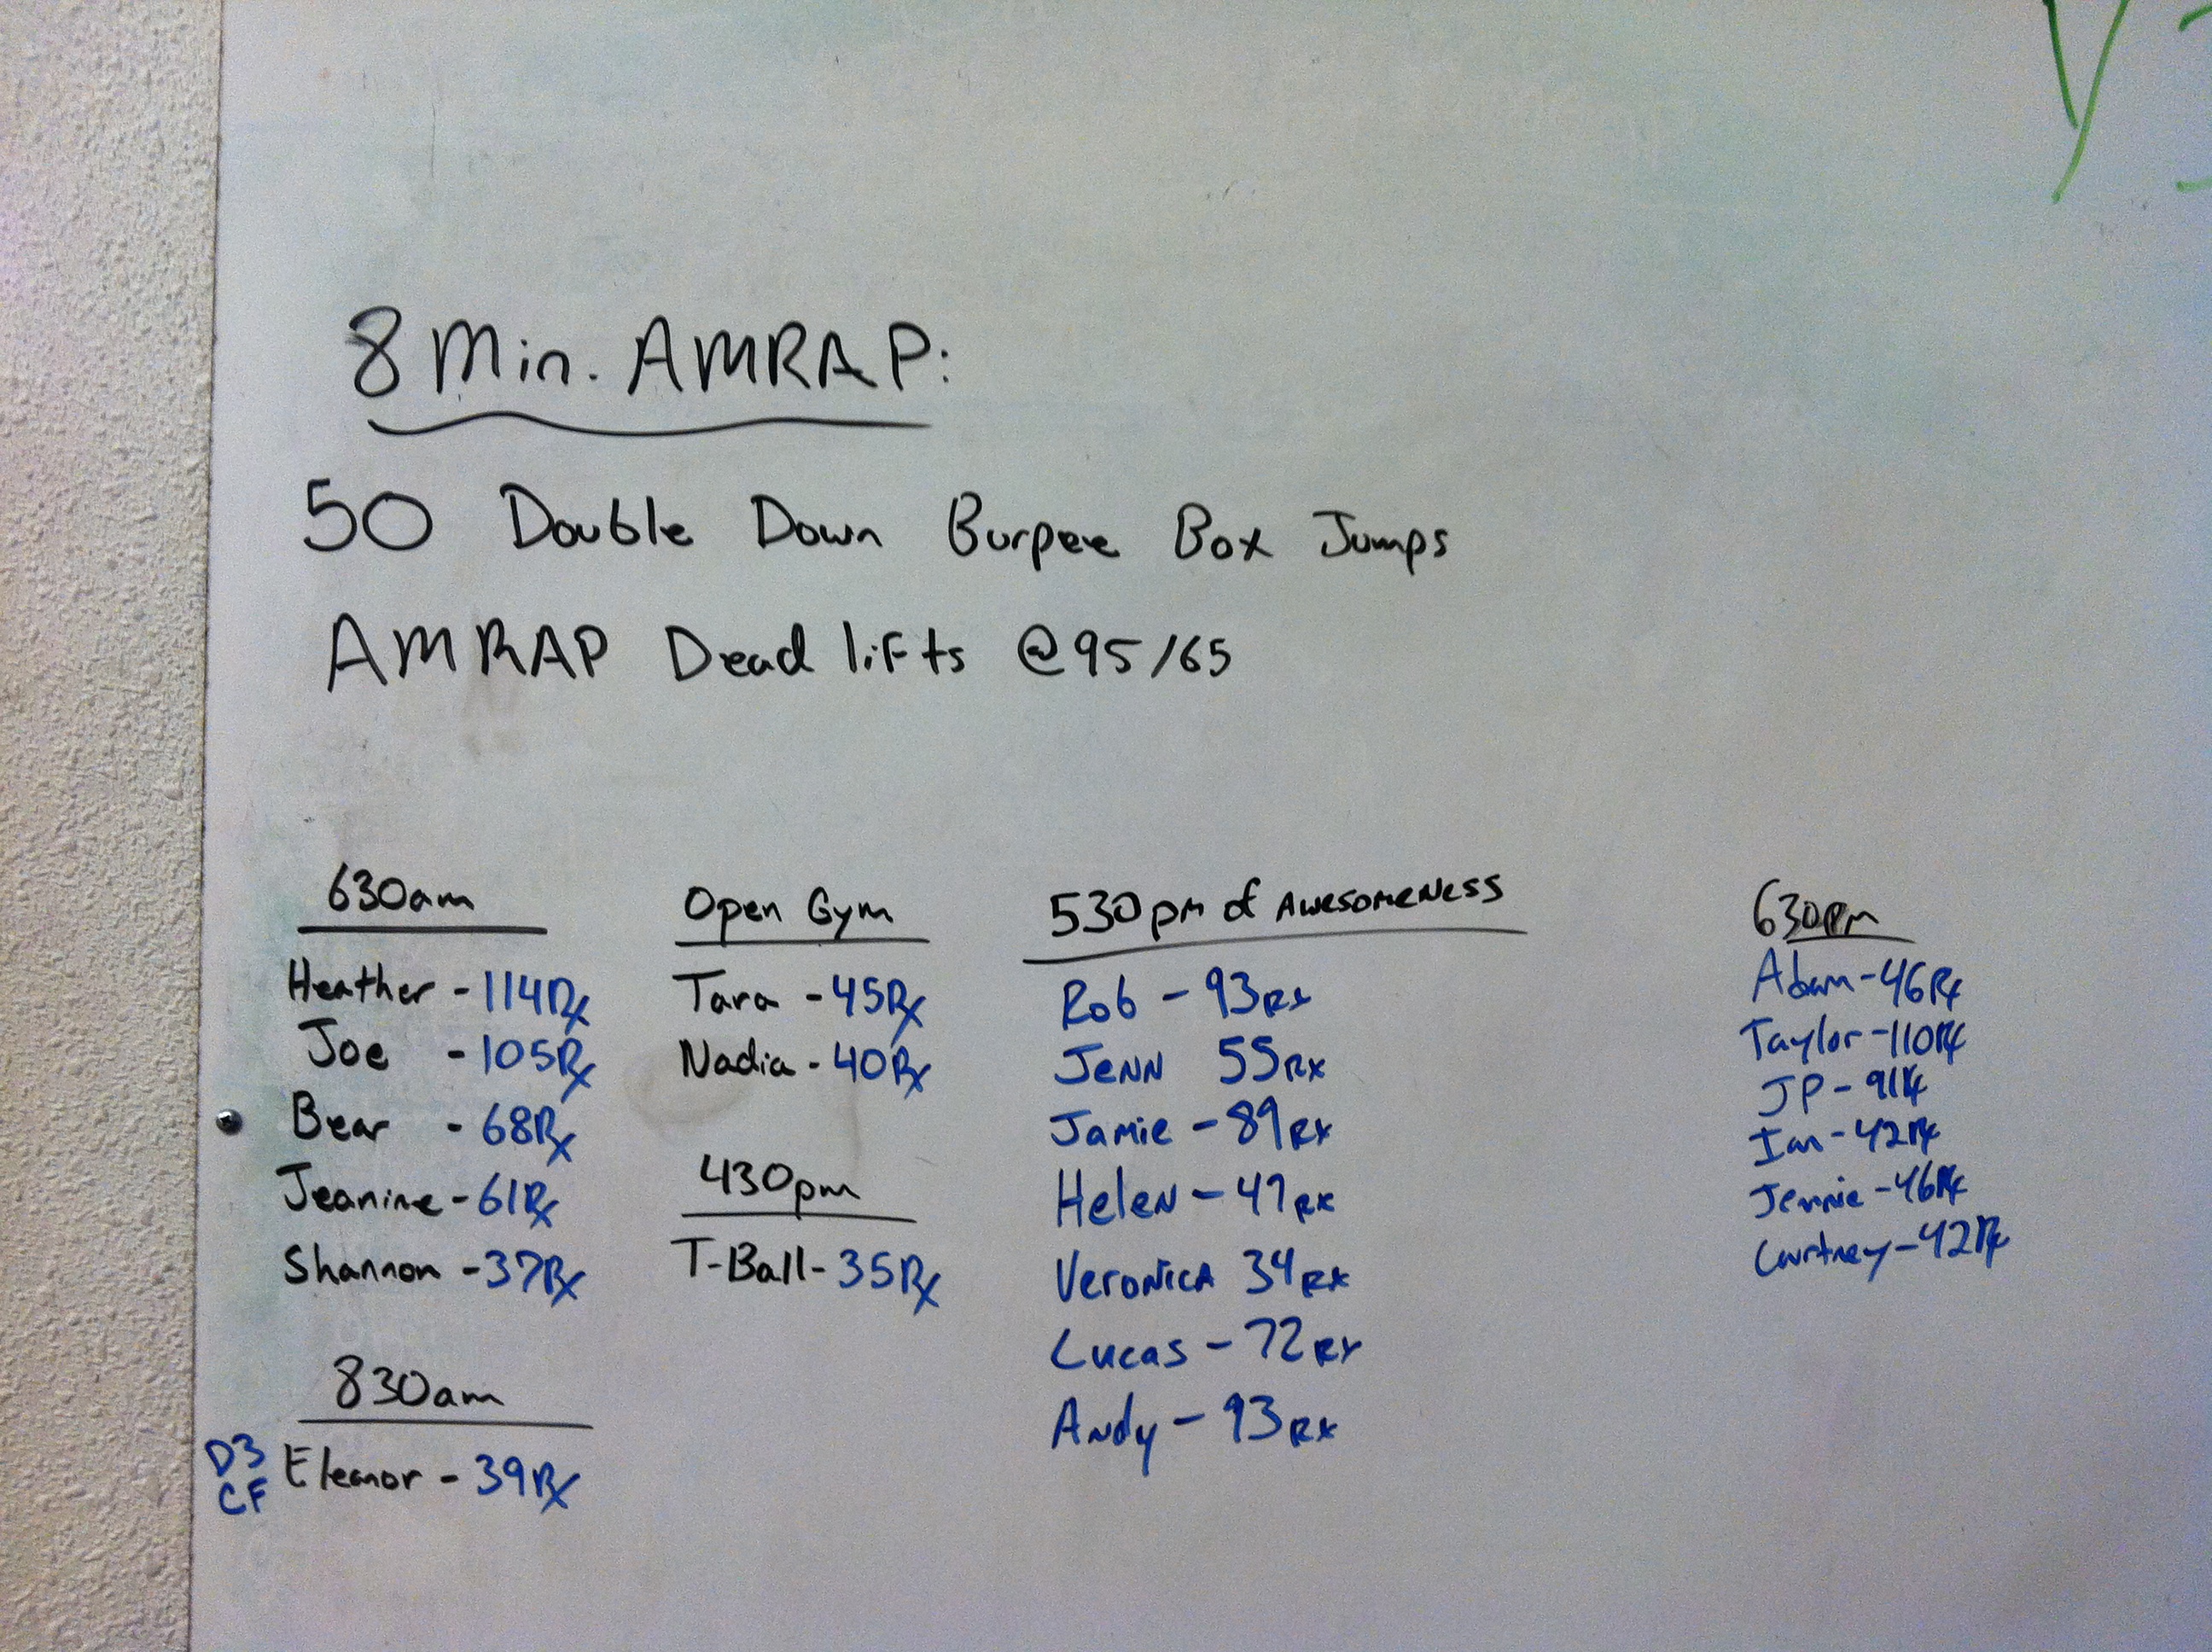 8 Min. AMRAP:
50 Double Down Burpee Box Jumps
AMRAP Dead lifts @95/65
630am
Heather - 114Rx
Joe - 105Rx
Bear - 68Rx
Jeanine - 61Rx
Shannon - 37Rx
830am
D3
CF
Eleanor - 39Rx
Open Gym
Tara - 45Rx
Nadia - 40Rx
430pm
T-Ball - 35Rx
530pm of Awesomeness
Rob - 93Rx
Jenn 55Rx
Jamie - 89Rx
Helen - 47Rx
Veronica 34Rx
Lucas - 72Rx
Andy - 93Rx
630pm
Adam - 46Rx
Taylor - 110Rx
JP - 91Rx
Ian - 42Rx
Jennie - 46Rx
Courtney - 42Rx